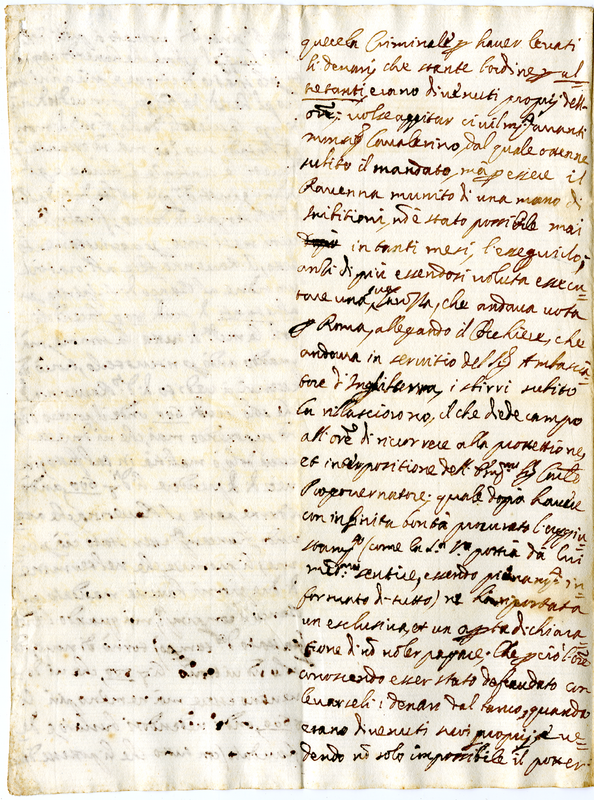 querela Criminale p haver levati
li denari, che stante l'ordine p al
tetanti erano divenuti proprij dell-
Ore; volse agitar civilmte avanti
monsig Cavalerino, dal quale ottenne
subito il mandato, mà p essere il
Ravenna munito di una mano di
inibitioni, nō è stato possibile mai
in tanti mesi l'eseguirlo;
anzi di più essendosi voluta esecu-
tare una sua, che andava vota
p Roma, allegando il Cochiere, che
andava in servitio del Sig Ambascia-
tore d'Inghilterra, i sbirri subito
la rilasciorono, il che diede campo
all'Ore di ricorrere alla protettione,
et interpositione dell' Sig Conte
Progovernatore; quale doppò havere
con infinita bontà procurato l'aggiu-
stamto (come la potrà da lui
medmo sentire, essendo pienamte in-
formato di tutto) n' hà riportata
un esclusiva, et un aperta dichiara-
tione di nō voler pagare. Che p ciò l'Ore
conoscendo esser stato defraudato con
levarseli i denari dal banco, quando
erano divenuti suoi proprij, e ve-
dendo nō solo impossibile il poter